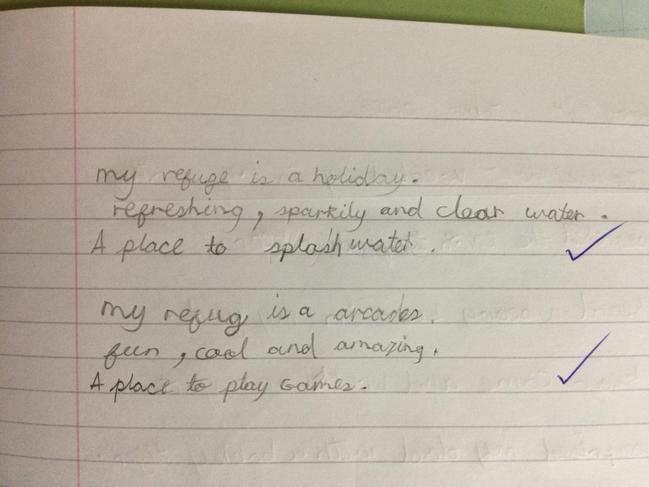 my refuge is a holiday.
refreshing, sparkily and clear water.
A place to splash water.
my refug is a arcades.
fun, cool and amazing.
A place to play Games.